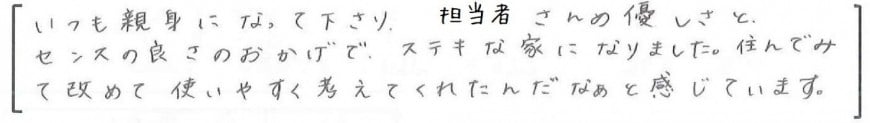 いつも親身になって下さり、担当者さんの優しさと、
センスの良さのおかげで、ステキな家になりました。住んでみ
て改めて使いやすく考えてくれたんだなぁと感じています。